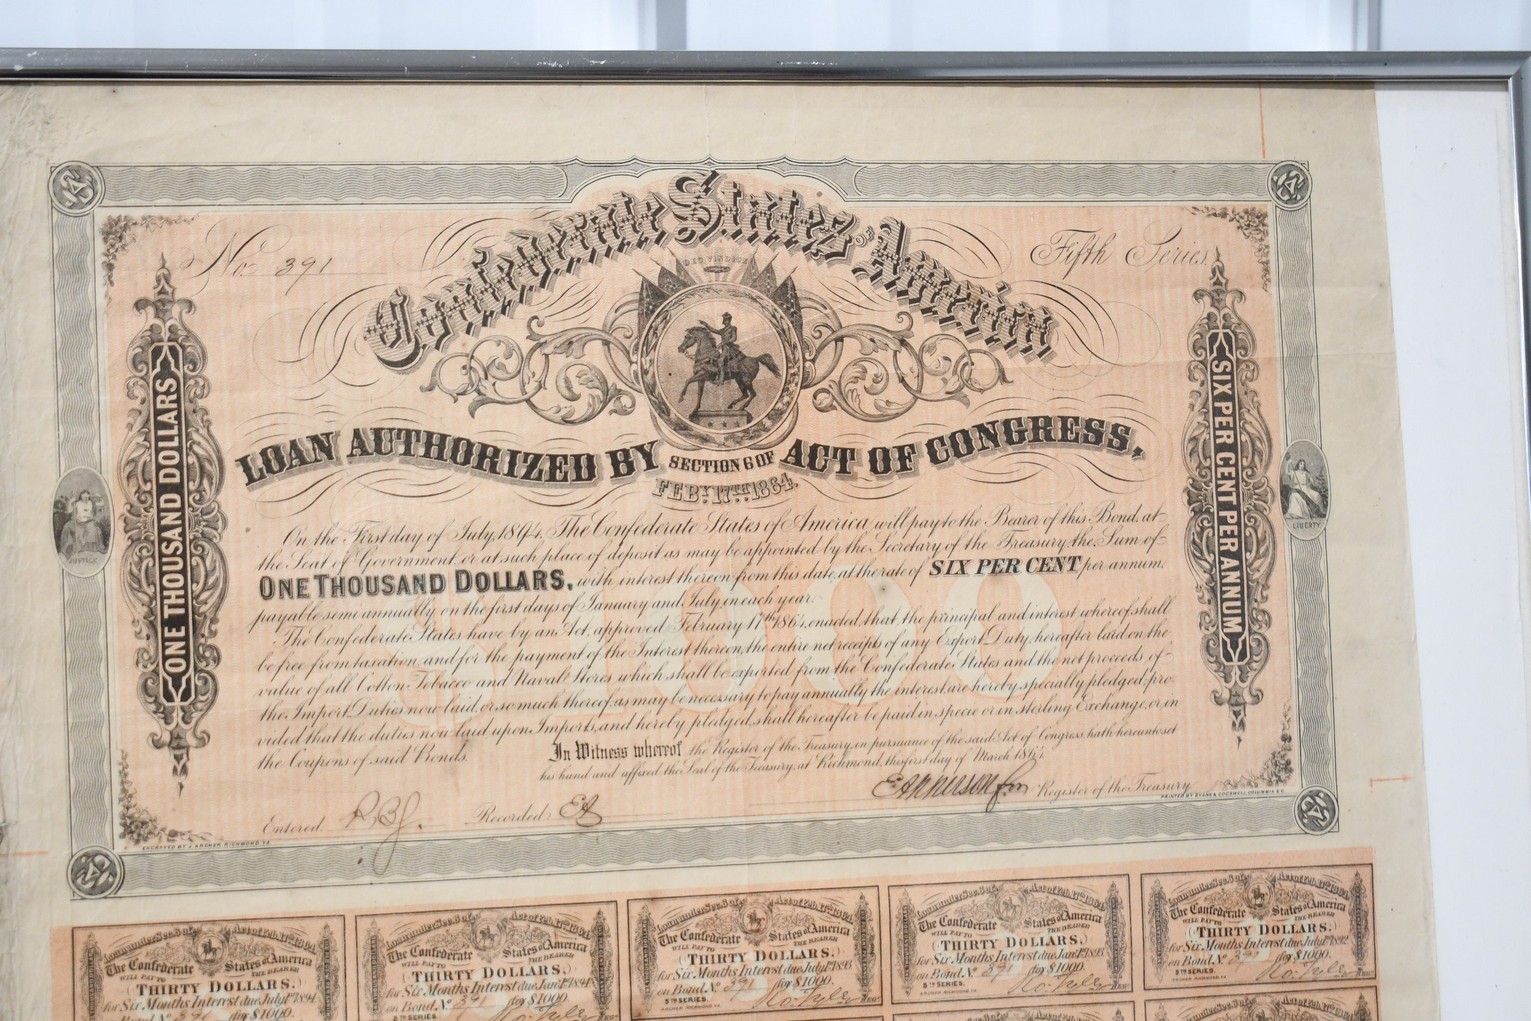 No. 391
Fifth Series
Confederate States OF America
DEO VINDICE
LOAN AUTHORIZED BY SECTION 6 OF ACT OF CONGRESS,
FEBY. 17TH. 1864.
ONE THOUSAND DOLLARS
SIX PER CENT PER ANNUM
JUSTICE
LIBERTY
On the First day of July, 1894, The Confederate States of America will pay to the Bearer of this Bond, at
the Seat of Government, or at such place of deposit as may be appointed by the Secretary of the Treasury the Sum of
ONE THOUSAND DOLLARS, with interest thereon from this date, at the rate of SIX PER CENT per annum,
payable semi annually on the first days of January and July, in each year.
The Confederate States have by an Act, approved February 17th 1864, enacted, that the principal and interest whereof shall
be free from taxation, and for the payment of the Interest thereon, the entire net receipts of any Export Duty, hereafter laid on the
value of all Cotton, Tobacco and Naval Stores which shall be exported from the Confederate States and the net proceeds of
the Import Duties now laid, or so much thereof, as may be necessary to pay annually the interest, are hereby specially pledged, pro-
vided that the duties now laid upon Imports, and hereby pledged, shall hereafter be paid in specie or in sterling Exchange, or in
the Coupons of said Bonds.
$1000
In Witness whereof the Register of the Treasury, in pursuance of the said Act of Congress, hath hereunto set
his hand and affixed the Seal of the Treasury, at Richmond, this first day of March 1864
Register of the Treasury.
Entered, Recorded, EA
ENGRAVED BY J. ARCHER, RICHMOND, VA.
PRINTED BY EVANS & COGSWELL, COLUMBIA S.C.
Loan under Sec. 6 of Act of Feb. 17th 1864.
The Confederate States of America
WILL PAY TO THE BEARER
THIRTY DOLLARS,
for Six Months Interest due July 1st 1894
on Bond No. 391 for $1000.
Loan under Sec. 6 of Act of Feb. 17th 1864.
The Confederate States of America
WILL PAY TO THE BEARER
THIRTY DOLLARS,
for Six Months Interest due Jany 1st 1894
on Bond No. 391 for $1000.
5TH SERIES. Ro. Tyler
Loan under Sec. 6 of Act of Feb. 17th 1864.
The Confederate States of America
WILL PAY TO THE BEARER
THIRTY DOLLARS,
for Six Months Interest due July 1st 1893
on Bond No. 391 for $1000.
5TH SERIES. Ro. Tyler
ARCHER, RICHMOND VA.
Loan under Sec. 6 of Act of Feb. 17th 1864.
The Confederate States of America
WILL PAY TO THE BEARER
THIRTY DOLLARS,
for Six Months Interest due Jany 1st 1893
on Bond No. 391 for $1000.
5TH SERIES. Ro. Tyler
ARCHER, RICHMOND VA.
Loan under Sec. 6 of Act of Feb. 17th 1864.
The Confederate States of America
WILL PAY TO THE BEARER
THIRTY DOLLARS,
for Six Months Interest due July 1st 1892
on Bond No. 391 for $1000.
5TH SERIES. Ro. Tyler
ARCHER, RICHMOND VA.